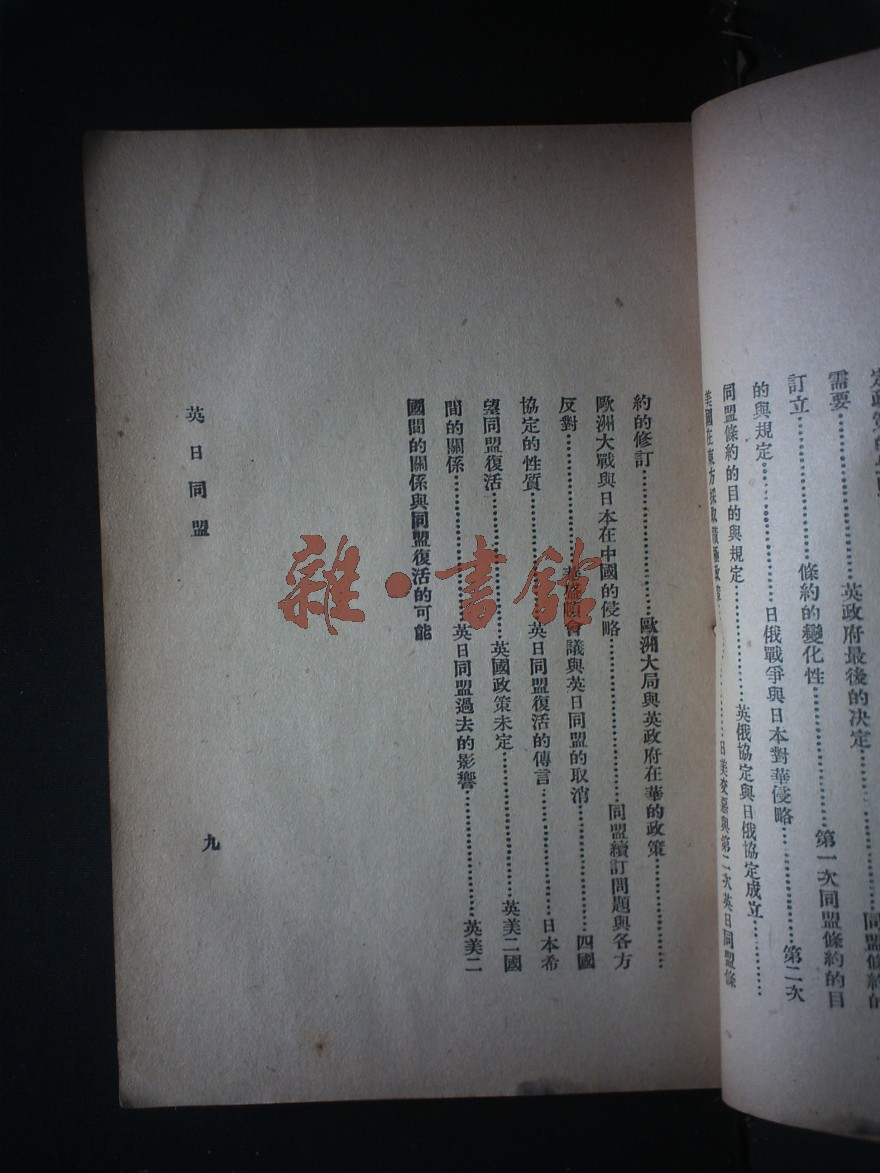 需要……………………英政府最後的決定……………………同盟條約的
訂立……………………條約的變化性……………………第一次同盟條約的目
的與規定……………………日俄戰爭與日本對華侵略……………………第二次
同盟條約的目的與規定……………………英俄協定與日俄協定成立……………………
美國在東方採取積極政策……………………日美交惡與第二次英日同盟條
約的修訂……………………歐洲大局與英政府在華的政策……………………
歐洲大戰與日本在中國的侵略……………………同盟續訂問題與各方
反對……………………華盛頓會議與英日同盟的取消……………………四國
協定的性質……………………英日同盟復活的傳言……………………日本希
望同盟復活……………………英國政策未定……………………英美二國
間的關係……………………英日同盟過去的影響……………………英美二
國間的關係與同盟復活的可能
英日同盟
九
雜·書館